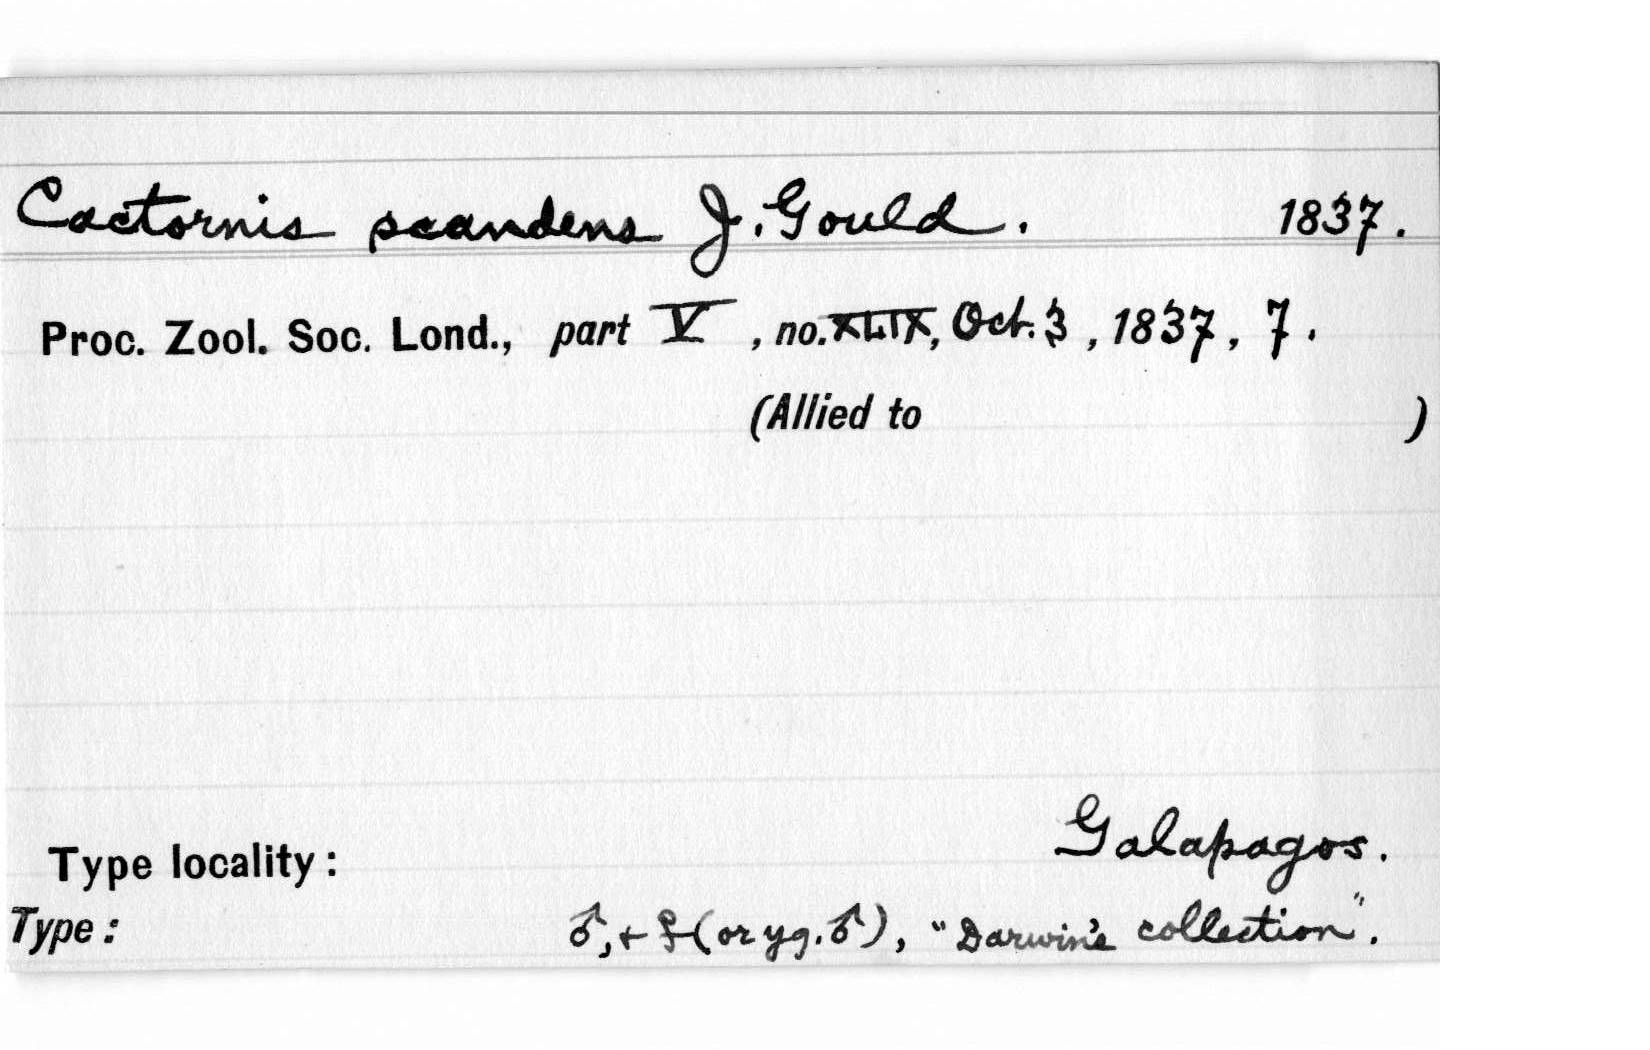 Cactornis scandens J. Gould. 1837.
Proc. Zool. Soc. Lond., part V, no. XLIX, Oct. 3, 1837, 7.
(Allied to )
Type locality: Galapagos.
Type: ♂, + ♀ (or yg. ♂), "Darwin's collection".